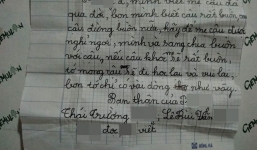 ơi, mình biết mẹ cậu đã
qua đời, bọn mình biết cậu rất buồn
cậu đừng buồn nữa, hãy để mẹ cậu được
nghỉ ngơi, mình và sang chia buồn
với cậu, nếu cậu khóc sẽ rất buồn
tớ mong cậu sẽ đi học lại và vui lại
bọn tớ chỉ có vài dòng như vậy.
Bạn thân của ấ
Thái Trường Lê Hữu Tiến
đọc viết